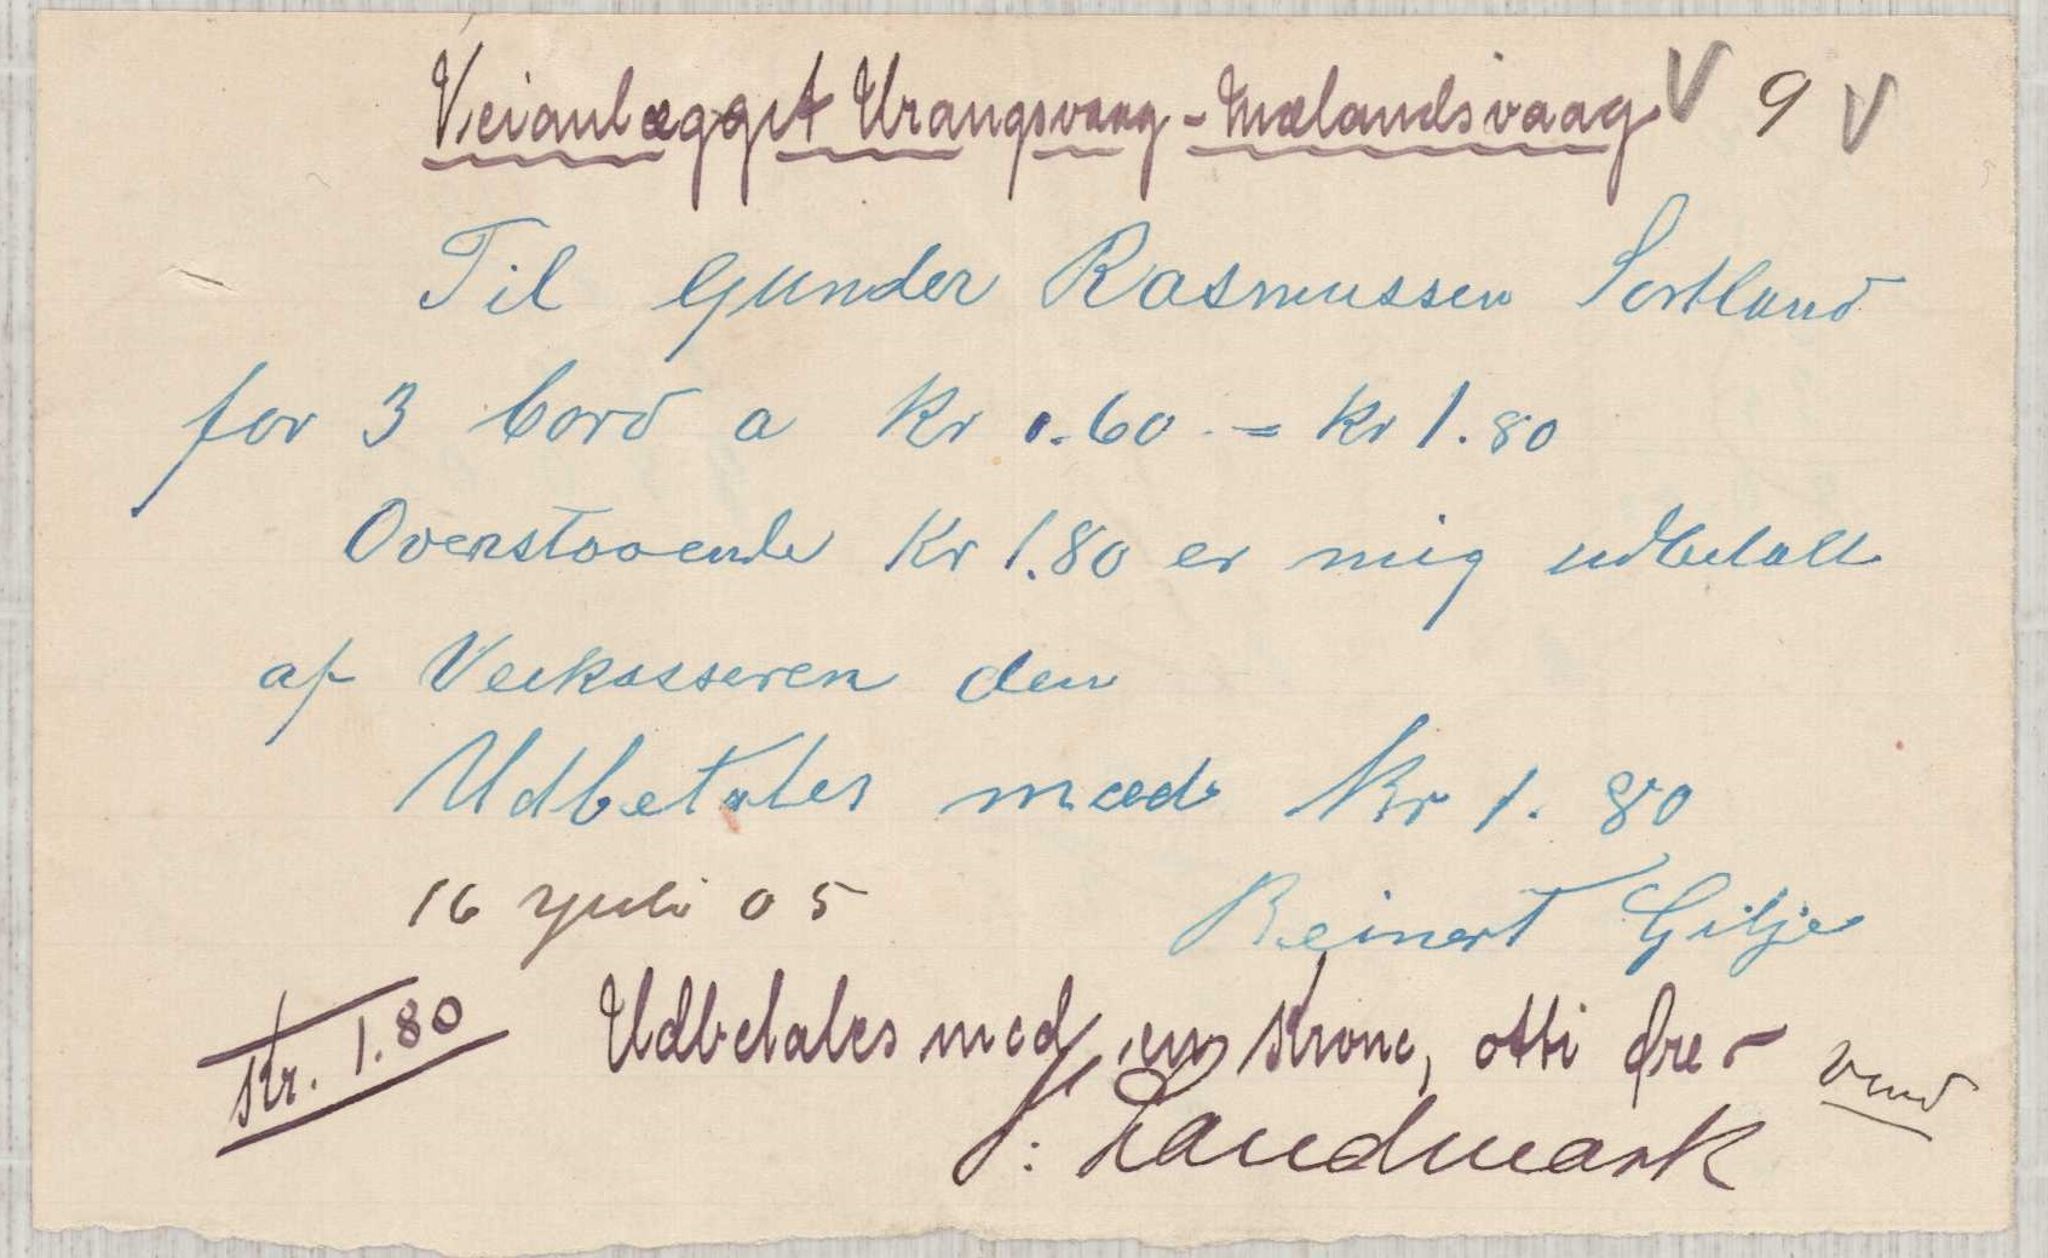 Veianlægget Urangsvaag - Mælandsvaag V 9 V
Til Gunder Rasmussen Sortland
for 3 bord a Kr 0.60 - = Kr 1.80
Overstaaende Kr 1.80 er mig udbetalt
af Veikasseren den
Udbetales med Kr 1.80
16 Juli 05 Reinert Gilje
Kr. 1.80 Udbetales med en Krone, otti øre -
J: Landmark
vend